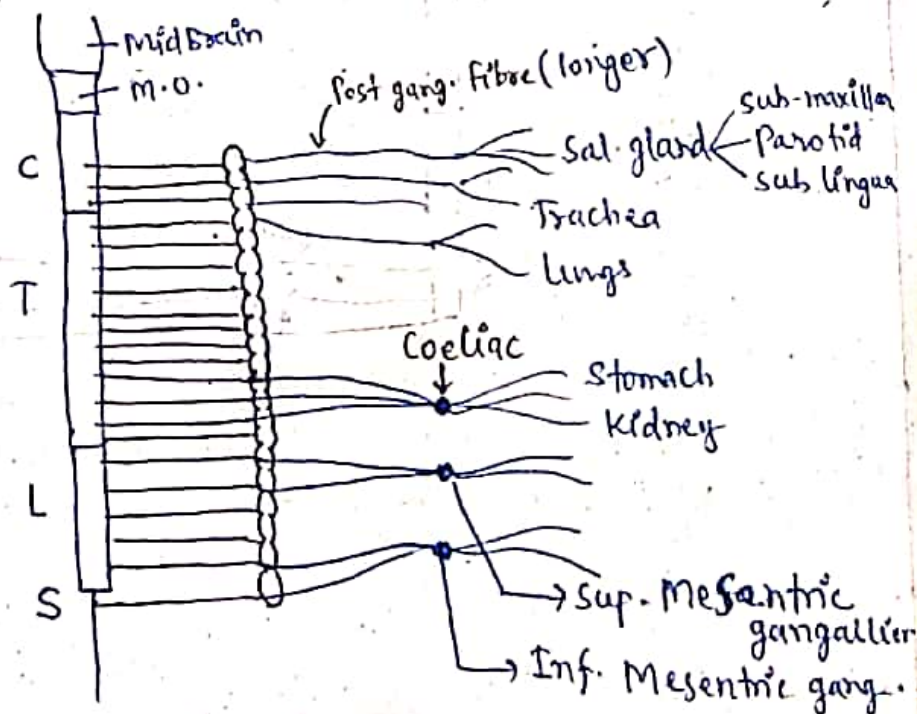 Midbrain
M.O.
Post gang. fibre (longer)
Sal. gland
sub-maxillar
Parotid
sub lingua
C
Trachea
Lungs
T
Coeliac
Stomach
Kidney
L
S
Sup. Mesantric
gangallier
Inf. Mesentric gang.